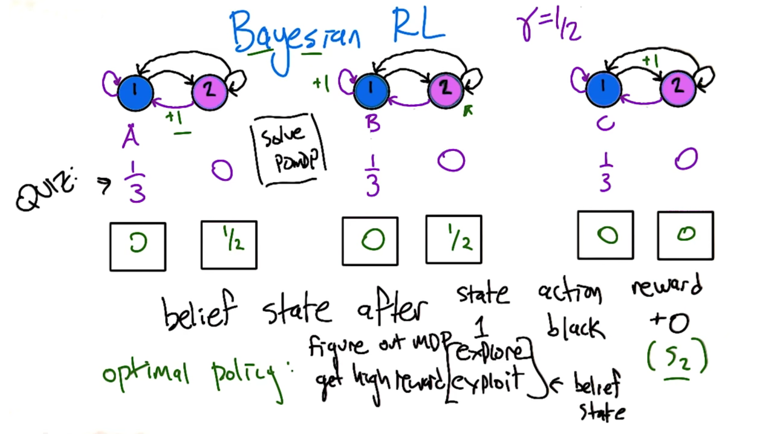 Bayesian RL γ=1/2
1 2 +1 1 2 1 +1 2
+1
A solve POMDP B C
QUIZ: → 1/3 0 1/3 0 1/3 0
0 1/2 0 1/2 0 0
belief state after state action reward
1 black +0
optimal policy: figure out MDP [explore] (S2)
get high reward [exploit] ← belief state